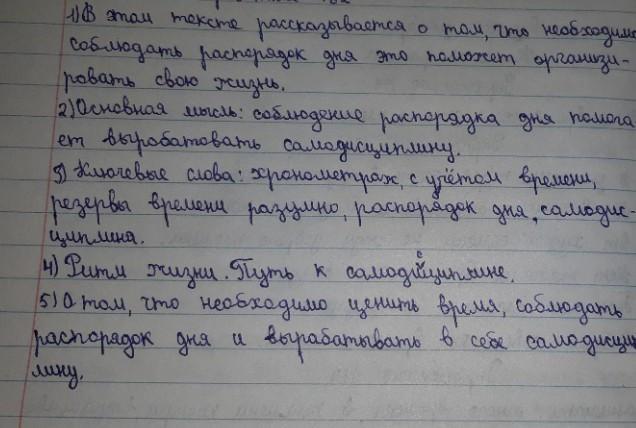 1) В этом тексте рассказывается о том, что необходимо
соблюдать распорядок дня это поможет организи-
ровать свою жизнь.
2) Основная мысль: соблюдение распорядка дня помога
ет выробатовать самодисциплину.
3) Ключевые слова: хронометраж, с учётом времени,
резервы времени разумно, распорядок дня, самодис-
циплина.
4) Ритм жизни. Путь к самодисциплине.
5) О том, что необходимо ценить время, соблюдать
распорядок дня и вырабатывать в себе самодисцип
лину.